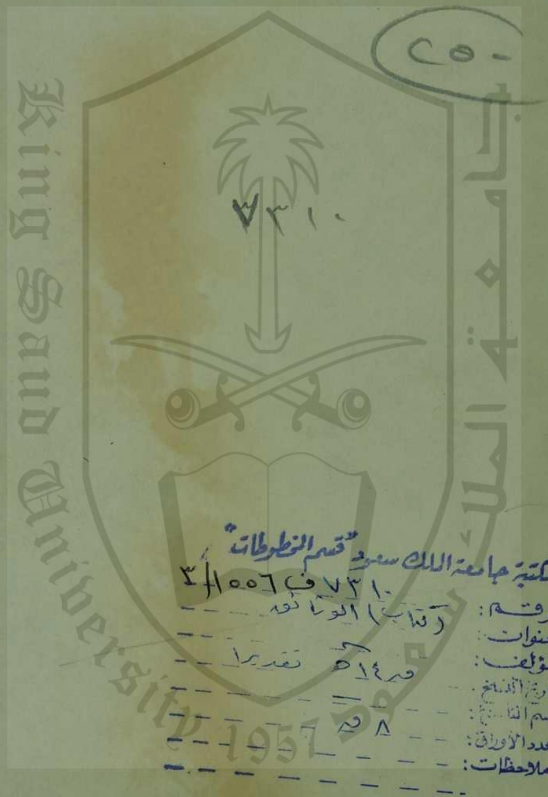 ٢٥٠
٧٣١٠
King Saud University
جامعة الملك سعود
1957
مكتبة جامعة الملك سعود "قسم المخطوطات"
الرقم: ٧٣١٠ ف ١٥٥٦/٣
العنوان: (كتاب) الوثائق
المؤلف:
تاريخ النسخ: ق ١٤ هـ تقديرا
اسم الناسخ:
عدد الأوراق: ٨ ق
ملاحظات: